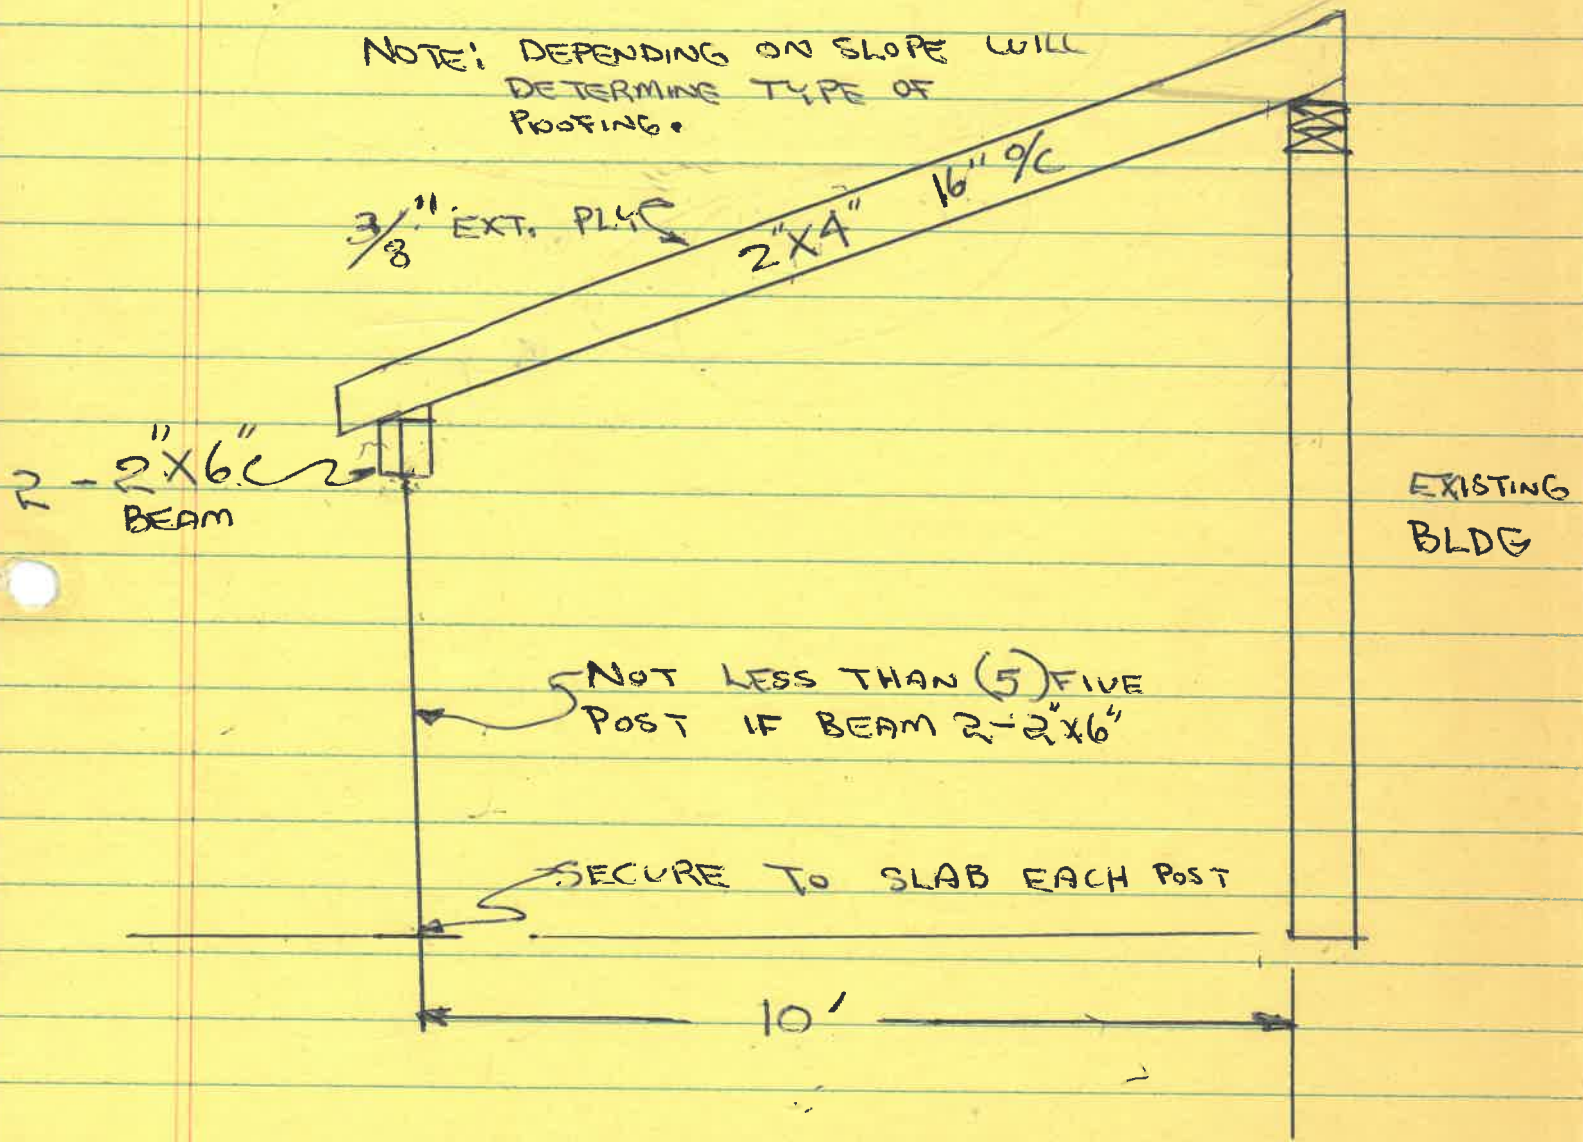 NOTE: DEPENDING ON SLOPE WILL
DETERMINE TYPE OF
ROOFING.
3/8" EXT. PLY
2"X4" 16" O/C
2-2"X6"
BEAM
EXISTING
BLDG
NOT LESS THAN (5) FIVE
POST IF BEAM 2-2"X6"
SECURE TO SLAB EACH POST
10'